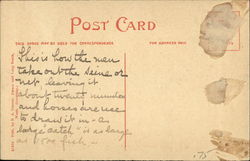 POST CARD
THIS SPACE MAY BE USED FOR CORRESPONDENCE
FOR ADDRESS ONLY
This is how the men
take out the seine or
net, leaving it
about twenty minutes
and horses are use
to draw it in - a
large "catch" is as large
as fish -